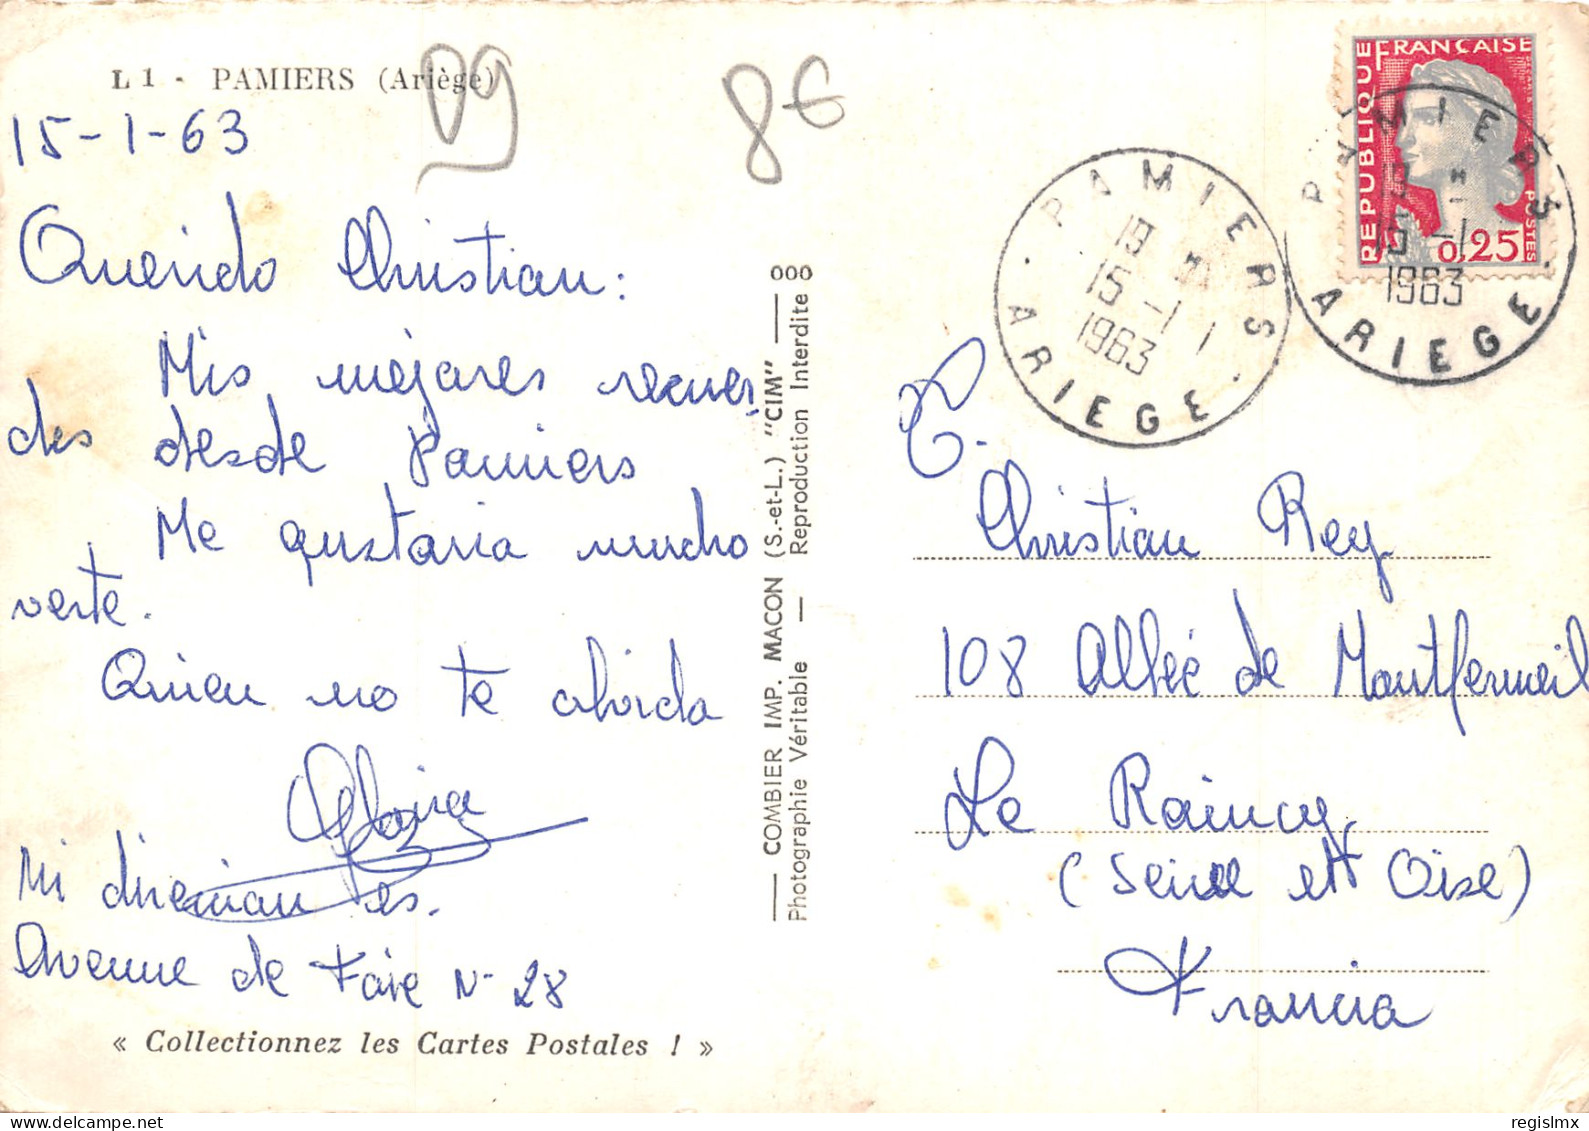 L 1 - PAMIERS (Ariège)
09
86
15-1-63
Querido Christian:
Mis mejores recuer-
dos desde Pamiers
Me gustaria mucho
verte.
Quien no te olvida
Mi direccion es.
Avenue de Foix Nº 28
« Collectionnez les Cartes Postales ! »
COMBIER IMP. MACON (S.-et-L.) "CIM" — 000
Photographie Véritable — Reproduction Interdite 00
RÉPUBLIQUE FRANÇAISE
POSTES
0,25
PAMIERS
19 H
15 -1
1963
ARIEGE
PAMIERS
15 -1
1963
ARIEGE
Christian Rey
108 Allée de Montfermeil
Le Raincy
(Seine et Oise)
Francia
regislmx